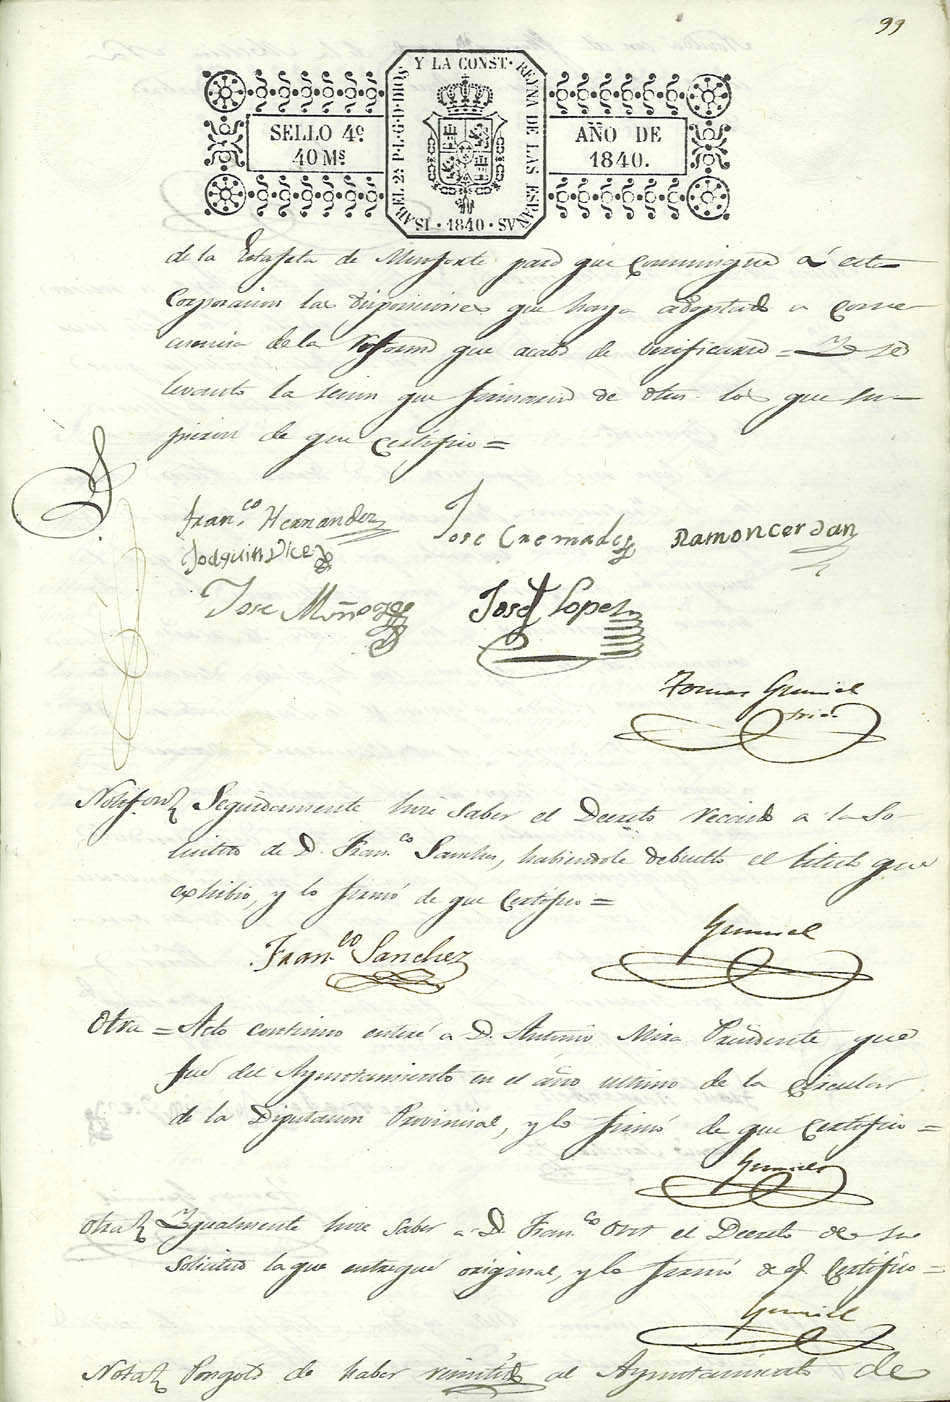 99
SELLO 4º
40 Mˢ
ISABEL 2ª P·L·G·D·DIOS Y LA CONST· REYNA DE LAS ESPAÑAS · 1840 ·
AÑO DE
1840.
de la Estafeta de Monforte para que comunique á esta
Corporacion las disposiciones que haya adoptado a conse
cuencia de la Reforma que acaba de verificarse = Y se
levanto la sesion que firmaron de otros los que su-
pieron de que certifico =
Fran.co Hernandez
Jose Cremades
Ramon Cerdan
Joaquin Vice
Jose Muñoz
Josef Lopez
Tomas Gumiel
Srio.
Notifon Seguidamente hice saber el Decreto recaido a la So-
licitud de D. Fran.co Sanches, habiendole debuelto el titulo que
exhibio, y lo firmó de que Certifico =
Fran.co Sanchez
Gumiel
Otra = Acto continuo enteré a D. Antonio Mira Presidente que
fué del Ayuntamiento en el año ultimo de la circular
de la Diputacion Provincial, y lo firmó de que certifico =
Gumiel
Otra Igualmente hice saber a D. Fran.co Orts el Decreto de su
Solicitud la que entregué original, y lo firmó de q. Certifico =
Gumiel
Nota Pongola de haber remitido al Ayuntamiento de